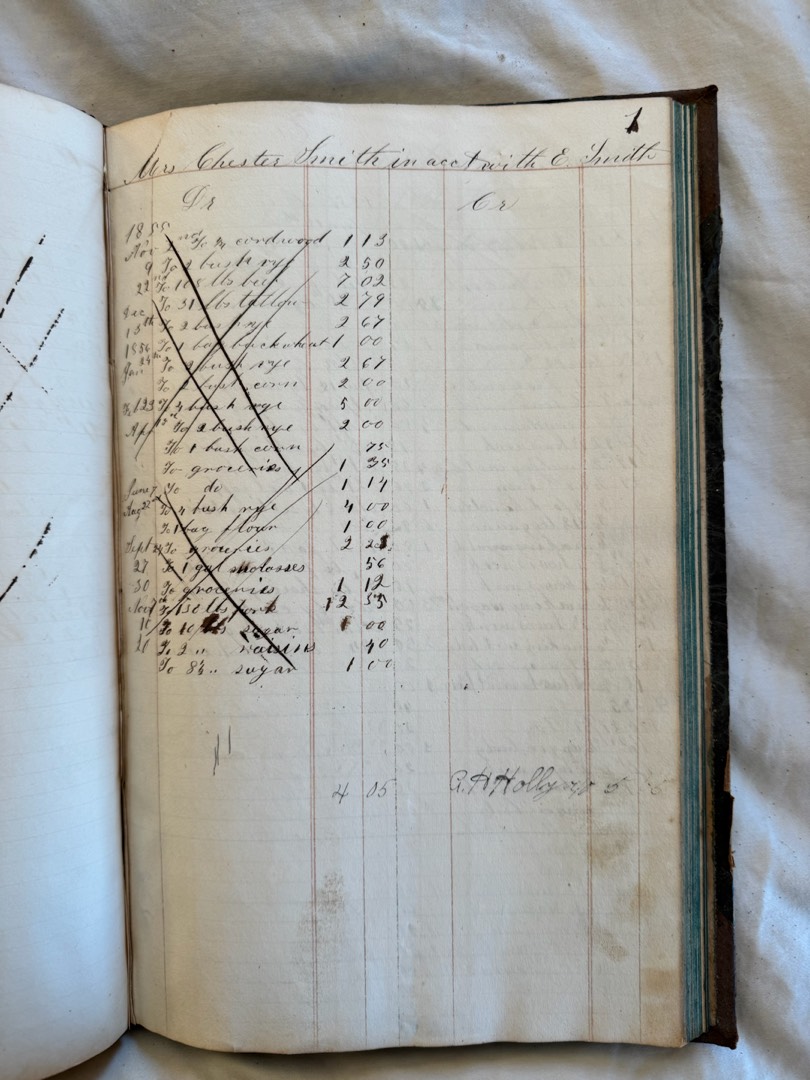 1
Mrs Chester Smith in acct with E. Smith
Dr Cr
1855
Nov 2nd To 3/4 cordwood 1 13
9 To 2 bush rye 2 50
22nd To 108 lbs beef 7 02
To 31 lbs tallow 2 79
Dec 15th To 2 bush rye 2 67
1856 To 1 bag buckwheat 1 00
Jan 24th To 2 bush rye 2 67
To 2 bush corn 2 00
Feb 23 To 4 bush rye 5 00
Apr To 2 bush rye 2 00
To 1 bush corn 75
To groceries 1 35
June 7 To do 1 14
Aug 22nd To 4 bush rye 4 00
To 1 bag flour 1 00
Sept 24 To groceries 2
27 To 1 gal molasses 56
30 To groceries 1 12
Nov To 130 lbs pork 12 55
10 To 10 lbs sugar 1 00
20 To 2 " raisins 40
To 8 3/4 " sugar 1 00
4 05 A. H Holly 5